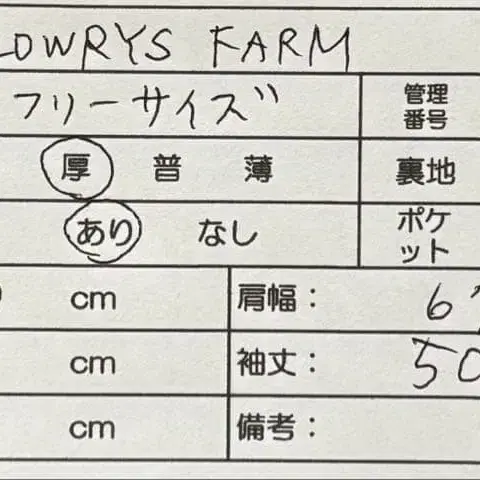 LOWRYS FARM
フリーサイズ
管理
番号
厚 普 薄
裏地
あり なし
ポケ
ット
cm
肩幅：
cm
袖丈： 50
cm
備考：